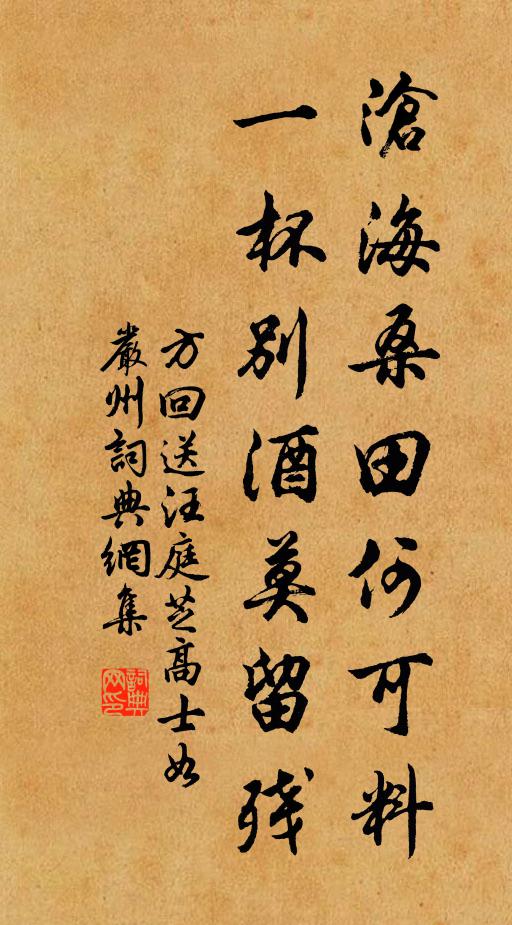 滄海桑田何可料
一杯別酒莫留殘
方回送汪庭芝高士如
嚴州詞典網集
詞典网印